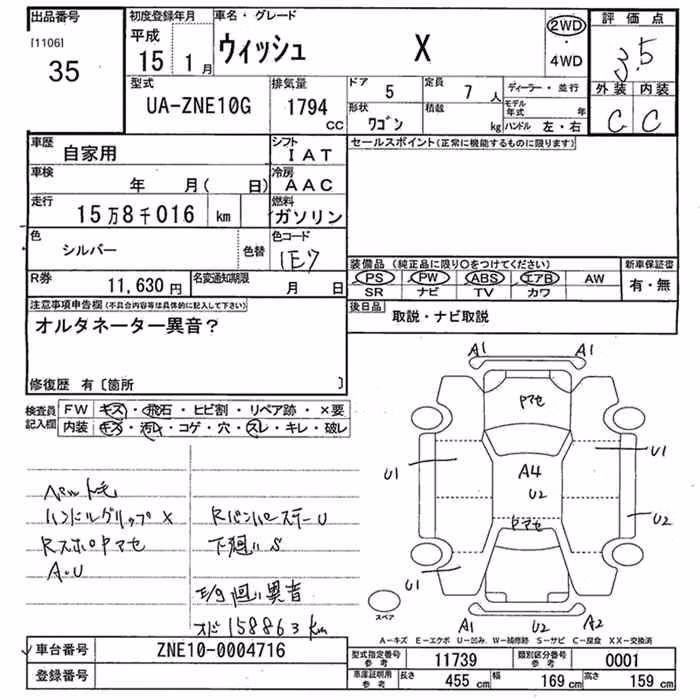 出品番号
[1106]
35
初度登録年月
平成
15 1月
車名・グレード
ウィッシュ X
2WD
・
4WD
評価点
3.5
外装 内装
C C
型式
UA-ZNE10G
排気量
1794
CC
ドア
5
定員
7 人
形状
ワゴン
積載
kg
ディーラー・並行
モデル
年式 年
ハンドル 左・右
車歴
自家用
シフト
IAT
車検
年 月( 日)
冷房
AAC
走行
15万8千016 km
燃料
ガソリン
色
シルバー
色替
色コード
1E7
R券
11,630円
名変通知期限
月 日
セールスポイント(正常に機能するものに限ります)
装備品(純正品に限り○をつけてください)
PS PW ABS エアB AW
SR ナビ TV カワ
新車保証書
有・無
後日品
取説・ナビ取説
注意事項申告欄(不具合内容等は具体的に記入して下さい)
オルタネーター異音?
修復歴 有〔箇所 〕
検査員
記入欄
FW キズ・飛石・ヒビ割・リペア跡・×要
内装 キズ・汚レ・コゲ・穴・スレ・キレ・破レ
ペット毛
ハンドルグリップX
RスポPヤセ
A・U
RバンパーステーU
下廻りS
E/g回り異音
オド158863km
A1 A1
Pヤセ
U1 U1
A4
U2
U2
Pヤセ
U1 U1
A1 U2 A2
スペア
A-キズ E-エクボ U-凹み W-補修跡 S-サビ C-腐食 XX-交換済
車台番号
ZNE10-0004716
登録番号
型式指定番号
参考
11739
類別区分番号
参考
0001
車庫証明用
参考
長さ
455 cm
幅
169 cm
高さ
159 cm